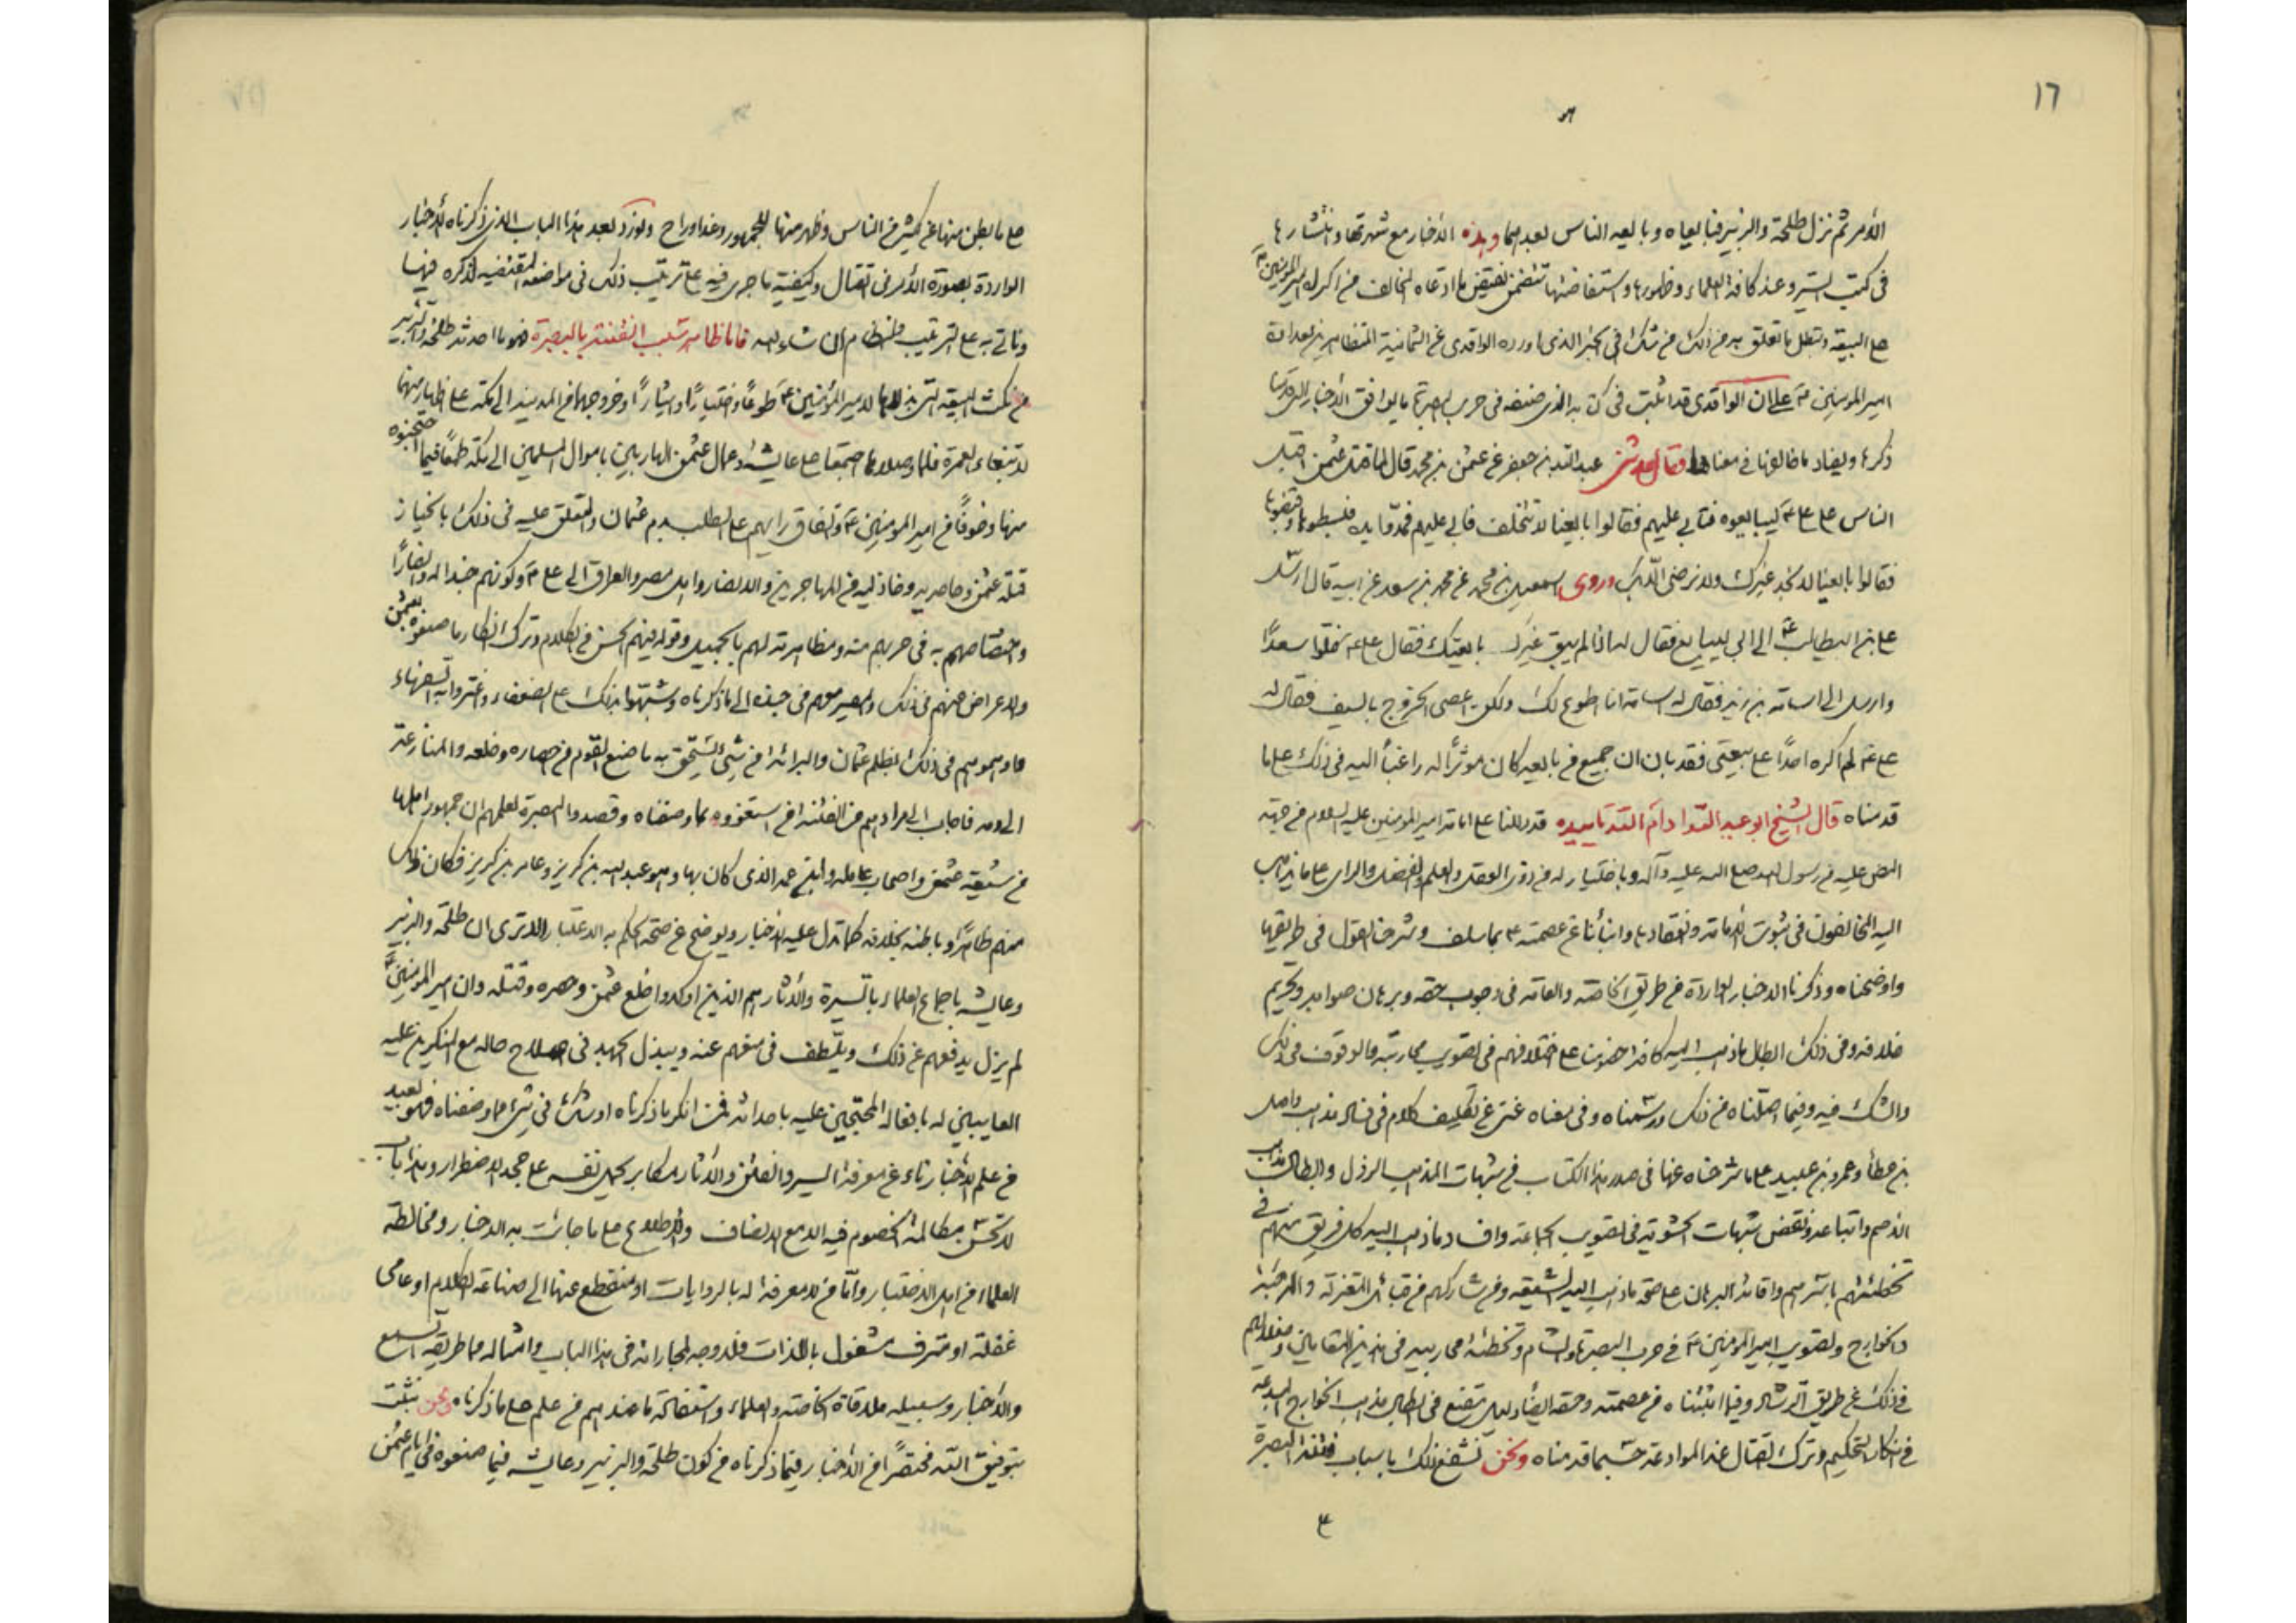 ١٦
الأمر ثم نزل طلحة والزبير فبايعاه وبايعه الناس بعدهما وهذه الأخبار مع شهرتها وانتشارها
في كتب السير وعند كافة العلماء وظهورها واستفاضتها تتضمن نقيض ما ادعاه المخالف من اكراه اميرالمؤمنين ع
على البيعة وتبطل ما تعلق به من ذلك من شك في الخبر الذي اورده الواقدي عن العثمانية المتظاهرين بعداوة
اميرالمؤمنين ع على ان الواقدي قد اثبت في كتابه الذي صنفه في حرب البصرة ما يوافق الأخبار التي قدمنا
ذكرها ويضاد ما خالفها في معناها فقال حدثني عبدالله بن جعفر عن عثمن بن محمد قال لما قتل عثمن اقبل
الناس على علي ع ليبايعوه فتابى عليهم فقالوا بايعنا لا تتخلف فابى عليهم فمدوا يده فبسطوها وقبضها
فقالوا بايعنا لا نجد غيرك ولا نرضى الا بك وروى اسمعيل بن محمد عن محمد بن سعد عن ابيه قال ارسل
علي بن ابيطالب ع الى ابي ليبايع فقال له اذا لم يبق غيرك بايعتك فقال علي ع خلوا سعدًا
وارسل الى اسامة بن زيد فقال له اسامة انا اطوع لك ولكن اعفني الخروج بالسيف فقال له
علي ع لم اكره احدًا على بيعتي فقد بان ان جميع من بايعه كان موثرًا له راغبًا اليه في ذلك على ما
قدمناه قال الشيخ ابو عبدالله ادام الله تاييده قد دللنا على امامة اميرالمؤمنين عليه السلام من جهة
النص عليه من رسول الله صلى الله عليه وآله وباختيار له من ذوي العقد والعلم والفضل والراى على ما يذهب
اليه المخالفون في ثبوت الامامة وانعقادها وانبأنا عن عصمته ع بما سلف وشرحنا القول في طريقها
واوضحناه وذكرنا الاخبار الواردة من طريق الخاصة والعامة في وجوب حقه وبرهان صوابه وتحريم
خلافه وفي ذلك ابطال ما ذهب اليه كافة خصومنا على اختلافهم في تصويب محاربته والوقوف في ذلك
والشك فيه وفيما اصلناه من ذلك ورسمناه وفي معناه غنى عن تكليف كلام في فساد مذهب واصل
بن عطا وعمرو بن عبيد على ما شرحناه عنها في صدر هذا الكتاب من شبهات المذهب الرذل وابطال مذاهب
الاصم واتباعه ونقض شبهات الحشوية في تصويب الجماعة وافساد ما ذهب اليه كل فريق منهم في
تخطئتهم باسرهم واقامة البرهان على صحة ما ذهب اليه الشيعة ومن شاركهم من قبائل المعتزلة والمرجئة
والخوارج وتصويب اميرالمؤمنين ع في حرب البصرة والشام وتخطئة محاربيه في هذين المقامين وضلالهم
في ذلك عن طريق الرشاد وفيما اثبتناه من عصمته وحقه ايضًا دليل مقنع في ابطال مذهب الخوارج المبدعة
في انكار التحكيم وترك القتال عند الموادعة حسبما قدمناه ونحن نشفع ذلك باسباب فتنة البصرة
على ما بطن منها عن كثير من الناس وظهر منها للجمهور وغدا وراح ونورد بعد هذا الباب الذي ذكرناه الاخبار
الواردة بصورة الأمر في القتال وكيفية ما جرى فيه على ترتيب ذلك في مواضعه المقتضيه لذكره فيها
وناتي به على الترتيب والنظام ان شاء الله فاما ظاهر سبب الفتنة بالبصرة فهو ما احدثه طلحة والزبير
من نكث البيعة التي بذلاها لاميرالمؤمنين ع طوعًا واختيارًا وايثارًا وخروجهما من المدينة الى مكة على اظهار منهما
لابتغاء العمرة فلما وصلاها اجتمعا مع عايشة وعمال عثمن الهاربين باموال المسلمين الى مكة طمعًا فيما احتجنوه
منها وخوفًا من اميرالمؤمنين ع واتفاق رايهم على الطلب بدم عثمان والتعلق عليه في ذلك بانحياز
قتلة عثمن وحاصريه وخاذليه من المهاجرين والانصار واهل مصر والعراق الى علي ع وكونهم جندا له وانصارًا
واختصاصهم به في حربهم منه ومظاهرته لهم بالجميل وقوله فيهم الحسن من الكلام وترك انكار ما صنعوه بعثمن
والاعراض عنهم في ذلك وتصييرهم من جنده الى ما ذكرناه وشبهوا بذلك على الضعفاء واغتروا به السفهاء
واوهموهم في ذلك بظلم عثمان والبرائة من شئ يستحق به ما صنع القوم من حصاره وخلعه والمنازعة
الى دمه فاجاب الى مرادهم من الفتنة من استغووه بما وصفناه وقصدوا البصرة لعلمهم ان جمهور اهلها
من شيعة عثمن واصحاب عامله وابن عمه الذي كان بها وهو عبدالله بن كريز وعامر بن كريز فكان ذلك
منهم ظاهرًا وباطنه بخلافه كما تدل عليه الأخبار ويوضح عن صحة الحكم به الاعتبار الا ترى ان طلحة والزبير
وعايشة باجماع العلماء بالسيرة والآثار هم الذين اوكدوا خلع عثمن وحصره وقتله وان اميرالمؤمنين ع
لم يزل يدفعهم عن ذلك ويلطف في منعهم عنه ويبذل الجهد في اصلاح حاله مع المنكرين عليه
العايبين له بافعاله المحتجين عليه باحداثه فمن انكر ما ذكرناه او شك في شئ مما وصفناه فهو بعيد
من علم الأخبار ناء عن معرفة السير والفتن والآثار مكابر يحمل نفسه على جحد الاضطرار وهذا باب
لا يحسن مكالمة الخصوم فيه الا مع الانصاف والاطلاع على ما جاءت به الاخبار ومخالطة
العلماء من اهل الاختبار واما من لا معرفة له بالروايات او منقطع عنها الى صناعة الكلام او عامي
غفلة او مترف مشغول باللذات فلا وجه لمجاراته في هذا الباب وامثاله مما طريقه السمع
والأخبار وسبيله ملاقاة الخاصة والعلماء واستفادة ما عندهم من علم على ما ذكرناه ونحن نثبت
بتوفيق الله مختصرًا من الأخبار فيما ذكرناه من كون طلحة والزبير وعايشة فيما صنعوه في ايام عثمن